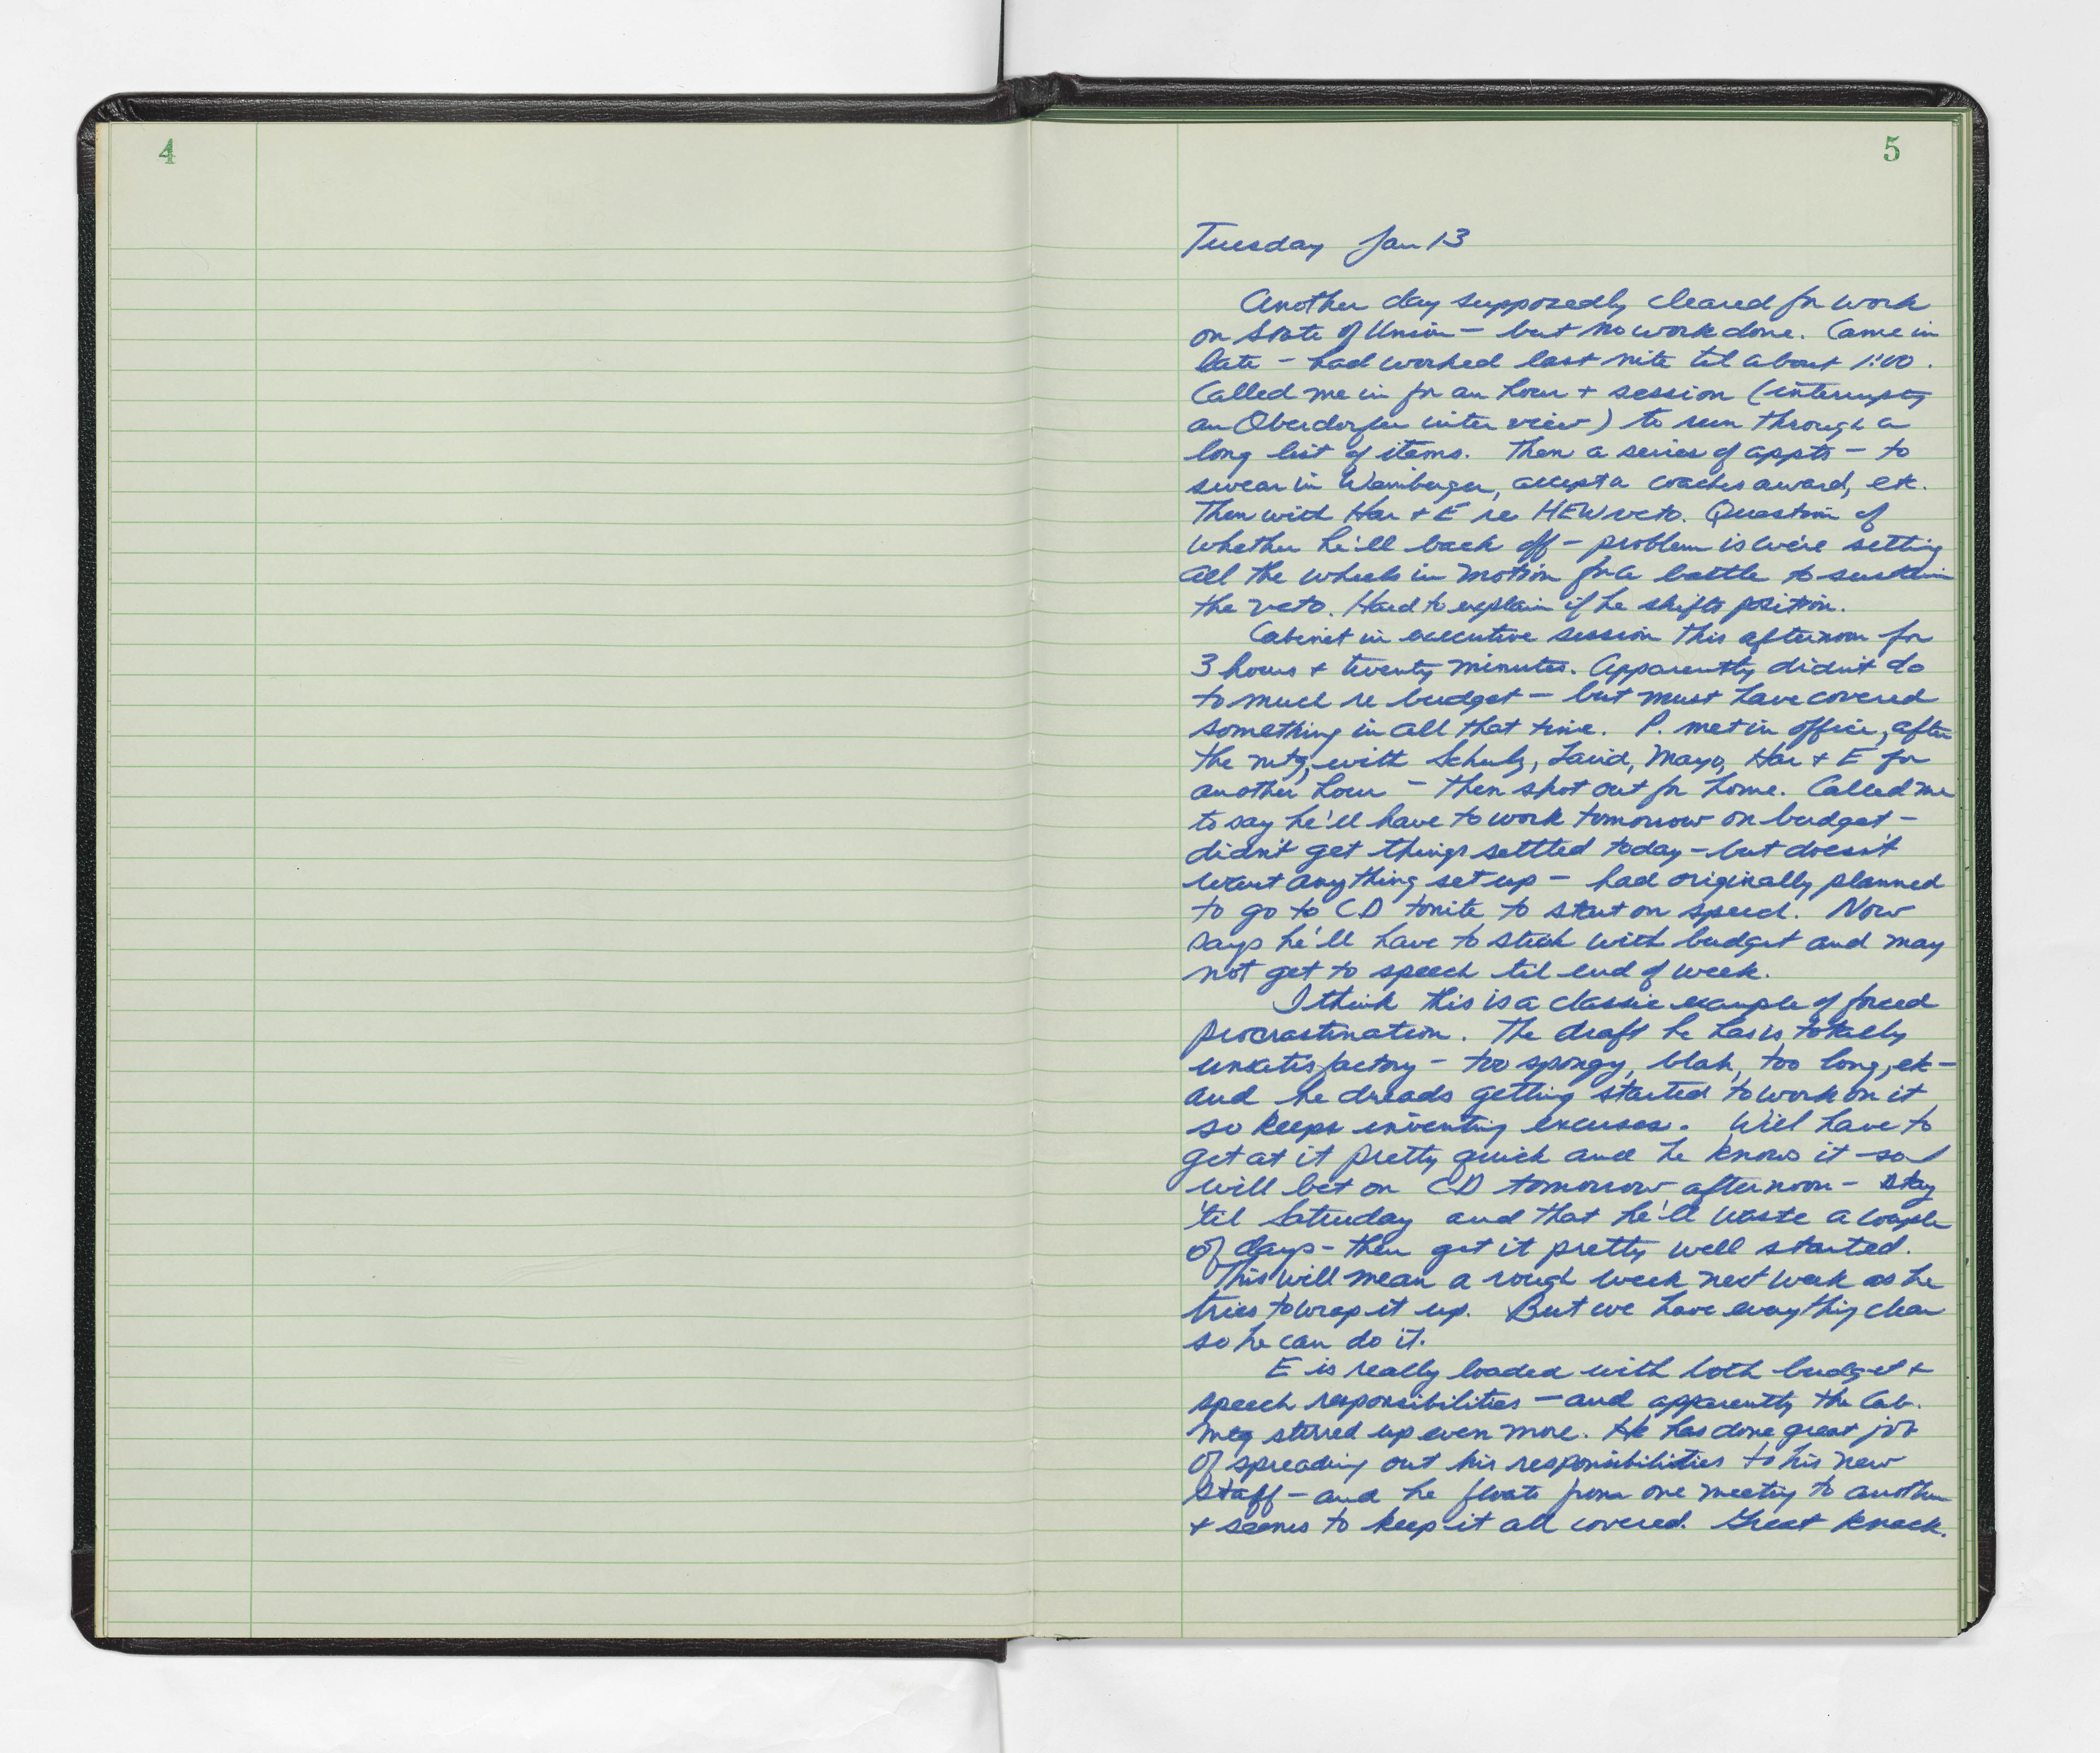 4
5
Tuesday Jan 13
Another day supposedly cleared for work
on State of Union - but no work done. Came in
late - had worked last nite til about 1:00.
Called me in for an hour + session (interrupting
an Oberdorfer interview) to run through a
long list of items. Then a series of appts - to
swear in Weinberger, accept a coaches award, etc.
Then with Har + E re HEW veto. Question of
whether he'll back off - problem is we're setting
all the wheels in motion for a battle to sustain
the veto. Hard to explain if he shifts position.
Cabinet in executive session this afternoon for
3 hours + twenty minutes. Apparently didn't do
to much re budget - but must have covered
something in all that time. P. met in office, after
the mtg, with Schulz, Laird, Mayo, Har + E for
another hour - then shot out for home. Called me
to say he'll have to work tomorrow on budget -
didn't get things settled today - but doesn't
want anything set up - had originally planned
to go to CD tonite to start on speech. Now
says he'll have to stick with budget and may
not get to speech til end of week.
I think this is a classic example of forced
procrastination. The draft he has is totally
unsatisfactory - too spongy, blah, too long, etc -
and he dreads getting started to work on it
so keeps inventing excuses. Will have to
get at it pretty quick and he knows it - so I
will bet on CD tomorrow afternoon - stay
'til Saturday and that he'll waste a couple
of days - then get it pretty well started.
This will mean a rough week next week as he
tries to wrap it up. But we have everything clear
so he can do it.
E is really loaded with both budget +
speech responsibilities - and apparently the Cab.
mtg stirred up even more. He has done great job
of spreading out his responsibilities to his new
staff - and he floats from one meeting to another
+ seems to keep it all covered. Great knack.